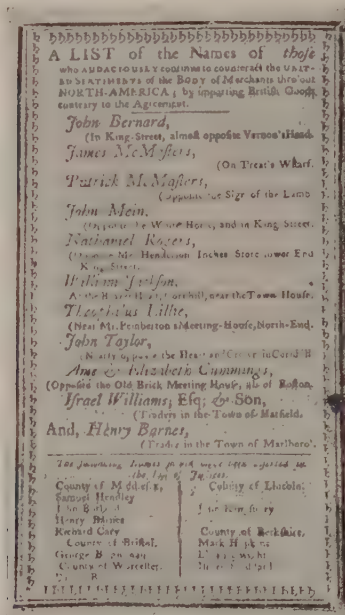 A LIST of the Names of those
who AUDACIOUSLY continue to counteract the UNIT-
ED SENTIMENTS of the BODY of Merchants thro'out
NORTH-AMERICA; by importing British Goods
contrary to the Agreement.
John Bernard,
(In King-Street, almost opposite Vernon's Head.
James McMasters,
(On Treat's Wharf.
Patrick McMasters,
(opposite the Sign of the Lamb
John Mein,
(Opposite the White Horse, and in King Street.
Nathaniel Rogers,
(Opposite Mr. Henderson Inches Store lower End
King Street.
William Jackson,
At the Brazen Head, Cornhill, near the Town House.
Theophilus Lillie,
(Near Mr. Pemberton's Meeting-House, North-End.
John Taylor,
(Nearly opposite the Heart and Crown in Cornhill
Ame & Elizabeth Cummings,
(Opposite the Old Brick Meeting House, all of Boston.
Israel Williams, Esq; & Son,
(Traders in the Town of Hatfield.
And, Henry Barnes,
(Trader in the Town of Marlboro'.
The following Names should have been inserted in
the List of Justices.
County of Middlesex, County of Lincoln.
Samuel Hendley
John
Henry Barnes
Richard Cary County of Berkshire.
County of Bristol. Mark Hopkins
George
County of Worcester.